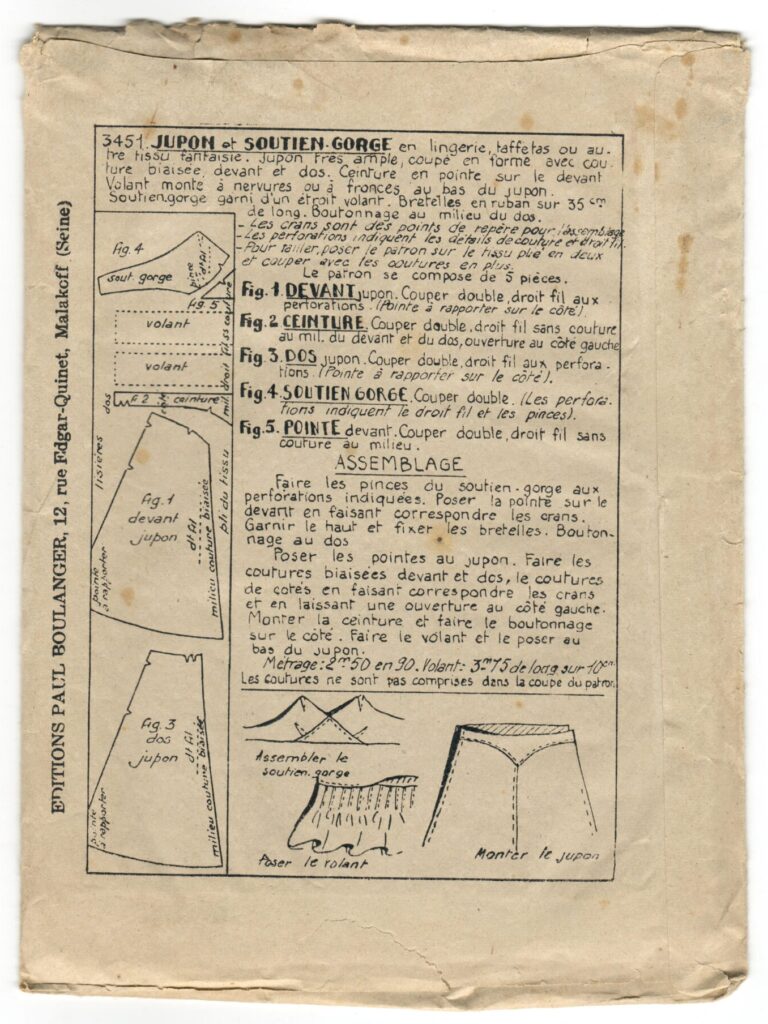 3451. JUPON et SOUTIEN-GORGE en lingerie, taffetas ou au-
tre tissu fantaisie. Jupon très ample, coupé en forme avec cou-
ture biaisée, devant et dos. Ceinture en pointe sur le devant
Volant monté à nervures ou à fronces au bas du jupon.
Soutien.gorge garni d'un étroit volant. Bretelles en ruban sur 35 cm
de long. Boutonnage au milieu du dos.
- Les crans sont des points de repère pour l'assemblage
- Les perforations indiquent les détails de couture et droit fil.
- Pour tailler, poser le patron sur le tissu plié en deux
et couper avec les coutures en plus.
Le patron se compose de 5 pièces.
Fig. 1. DEVANT jupon. Couper double, droit fil aux
perforations. (Pointe à rapporter sur le côté).
Fig. 2. CEINTURE. Couper double, droit fil sans couture
au mil. du devant et du dos, ouverture au côté gauche
Fig. 3. DOS jupon. Couper double, droit fil aux perfora-
tions. (Pointe à rapporter sur le côté).
Fig. 4. SOUTIEN GORGE. Couper double. (Les perfora-
tions indiquent le droit fil et les pinces).
Fig. 5. POINTE devant. Couper double, droit fil sans
couture au milieu.
ASSEMBLAGE
Faire les pinces du soutien-gorge aux
perforations indiquées. Poser la pointe sur le
devant en faisant correspondre les crans.
Garnir le haut et fixer les bretelles. Bouton-
nage au dos
Poser les pointes au jupon. Faire les
coutures biaisées devant et dos, le coutures
de cotés en faisant correspondre les crans
et en laissant une ouverture au côté gauche.
Monter la ceinture et faire le boutonnage
sur le côté. Faire le volant et le poser au
bas du jupon.
Métrage: 2m50 en 90. Volant: 3m75 de long sur 10cm
Les coutures ne sont pas comprises dans la coupe du patron.
Fig. 4
sout. gorge
pince
dt fil
fig. 5
volant
volant
mil. droit fil ss couture
dos
F 2 ceinture
côté
lisières
pli du tissu
Fig. 1
devant
jupon
dt fil
milieu couture biaisée
pointe
à rapporter
fig. 3
dos
jupon
dt fil
biaisée
milieu couture
pointe
à rapporter
Assembler le
soutien.gorge
Poser le volant
Monter le jupon
EDITIONS PAUL BOULANGER, 12, rue Edgar-Quinet, Malakoff (Seine)